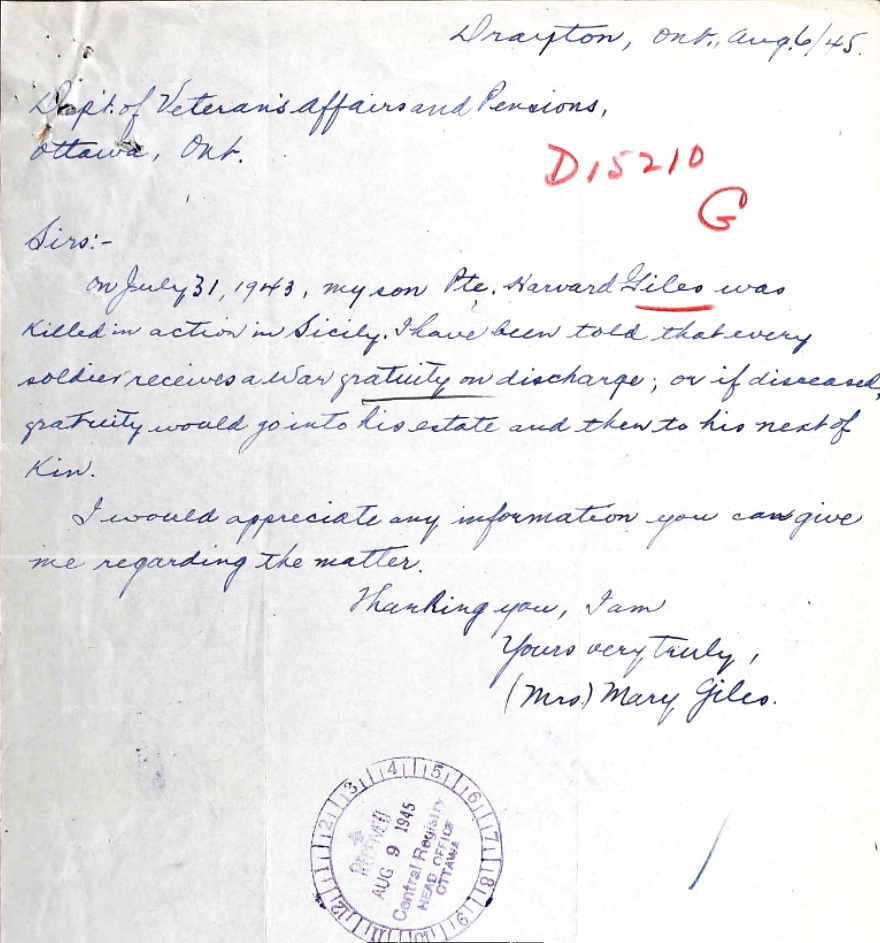 Drayton, Ont., Aug. 6/45.
Dep't. of Veteran's Affairs and Pensions,
Ottawa, Ont.
D15210
G
Sirs:-
On July 31, 1943, my son Pte. Harvard Giles was
killed in action in Sicily. I have been told that every
soldier receives a War gratuity on discharge; or if diseased,
gratuity would go into his estate and then to his next of
kin.
I would appreciate any information you can give
me regarding the matter.
Thanking you, I am
Yours very truly,
(Mrs.) Mary Giles.
1 2 3 4 5 6 7 8 9 10 11 12
RECEIVED
AUG 9 1945
Central Registry
HEAD OFFICE
OTTAWA